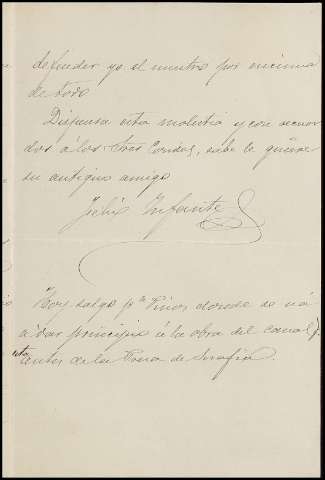 defender yo el nuestro por encima
de todo
Dispensa esta molestia y con recuer
dos á los tres Condes, sabe le quiere
su antiguo amigo
Felix Infante
Hoy salgo pª donde se vá
á dar principio á la obra del canal,
antes de la de